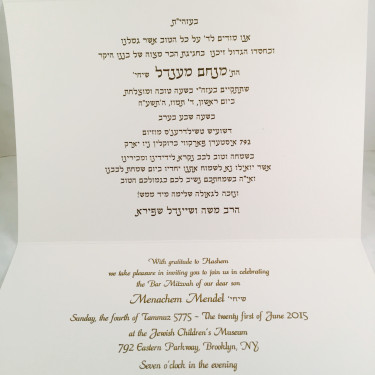 בעזהי"ת
אנו מודים לד' על כל הטוב אשר גמלנו
ובחסדו הגדול זיכנו בחגיגת הבר מצוה של בננו היקר
הת' מנחם מענדל שיחי'
שתתקיים בעזה"י בשעה טובה ומוצלחת
ביום ראשון, ד' תמוז, ה'תשע"ה
בשעה שבע בערב
דזשואיש טשילדרענ'ס מוזיום
792 איסטערן פארקוויי ברוקלין ניו יארק
בשמחה וטוב לבב נקרא לידידינו ומכירינו
אשר יואילו נא לשמוח אתנו יחדיו ביום שמחת לבבנו
ואי"ה בשמחתכם נשיב לכם כגמולכם הטוב
ונזכה לגאולה שלימה מיד ממש!
הרב משה ושיינדל שפירא
With gratitude to Hashem
we take pleasure in inviting you to join us in celebrating
the Bar Mitzvah of our dear son
Menachem Mendel שיחי'
Sunday, the fourth of Tammuz 5775 - The twenty first of June 2015
at the Jewish Children's Museum
792 Eastern Parkway, Brooklyn, NY
Seven o'clock in the evening